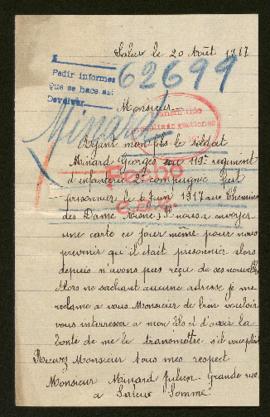 Saleux le 20 Août 1917
Pedir informes
que se hace así
Devolver
62699
Monsieur
Minard
Ayant mon fils le soldat
Minard Georges au 113e regiment
d'infanterie 2e compagnie fait
prisonnier le 6 Juin 1917 au Chemin
des Dame Aisne il nous a envoyer
une carte ce jour même pour nous
prevenir qui il était prisonier alors
depuis n'avons pas reçu de ses nouvelles
Alors ne sachant aucune adresse je me
reclame a vous Monsieur de bien vouloir
vous interresser a mon fils et d'avoir la
bonté de me le transmettre s'il vous plait
Recevez Monsieur tous mes respect
Monsieur Minard Julien Grande rue
a Saleux Somme